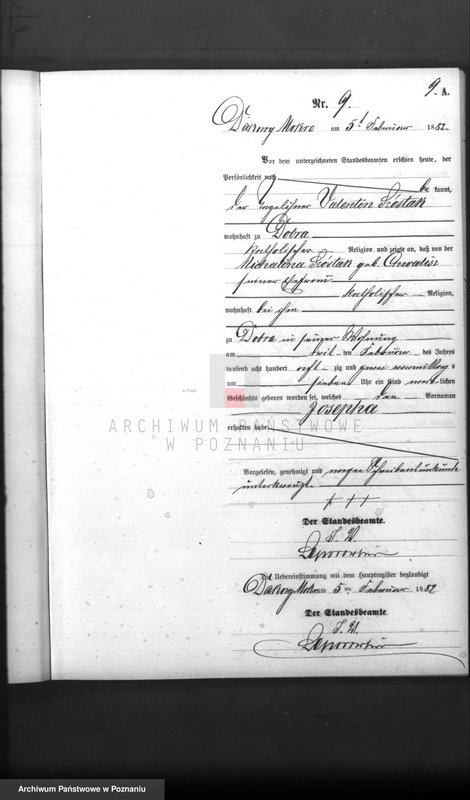 9. A.
Nr. 9.
Dakowy Mokre am 5t Februar 1882
Vor dem unterzeichneten Standesbeamten erschien heute, der
Persönlichkeit nach
be kannt,
der Tagelöhner Valentin Szóstak
wohnhaft zu Dobra
katholischer Religion, und zeigte an, daß von der
Michalina Szóstak geb.
seiner Ehefrau
katholischer Religion,
wohnhaft bei ihm
zu Dobra in seiner Wohnung
am drit-ten Februar des Jahres
tausend acht hundert acht-zig und zwei vormittags
um sieben Uhr ein Kind weib-lichen
Geschlechts geboren worden sei, welches den Vornamen
Josepha
erhalten habe
ARCHIWUM PAŃSTWOWE
W POZNANIU
Vorgelesen, genehmigt und wegen Schreibensunkunde
unterkreuzt.
+ + +
Der Standesbeamte.
I. V.
Die Uebereinstimmung mit dem Hauptregister beglaubigt
Dakowy Mokre am 5 ten Februar 1882
Der Standesbeamte.
I. V.
Archiwum Państwowe w Poznaniu